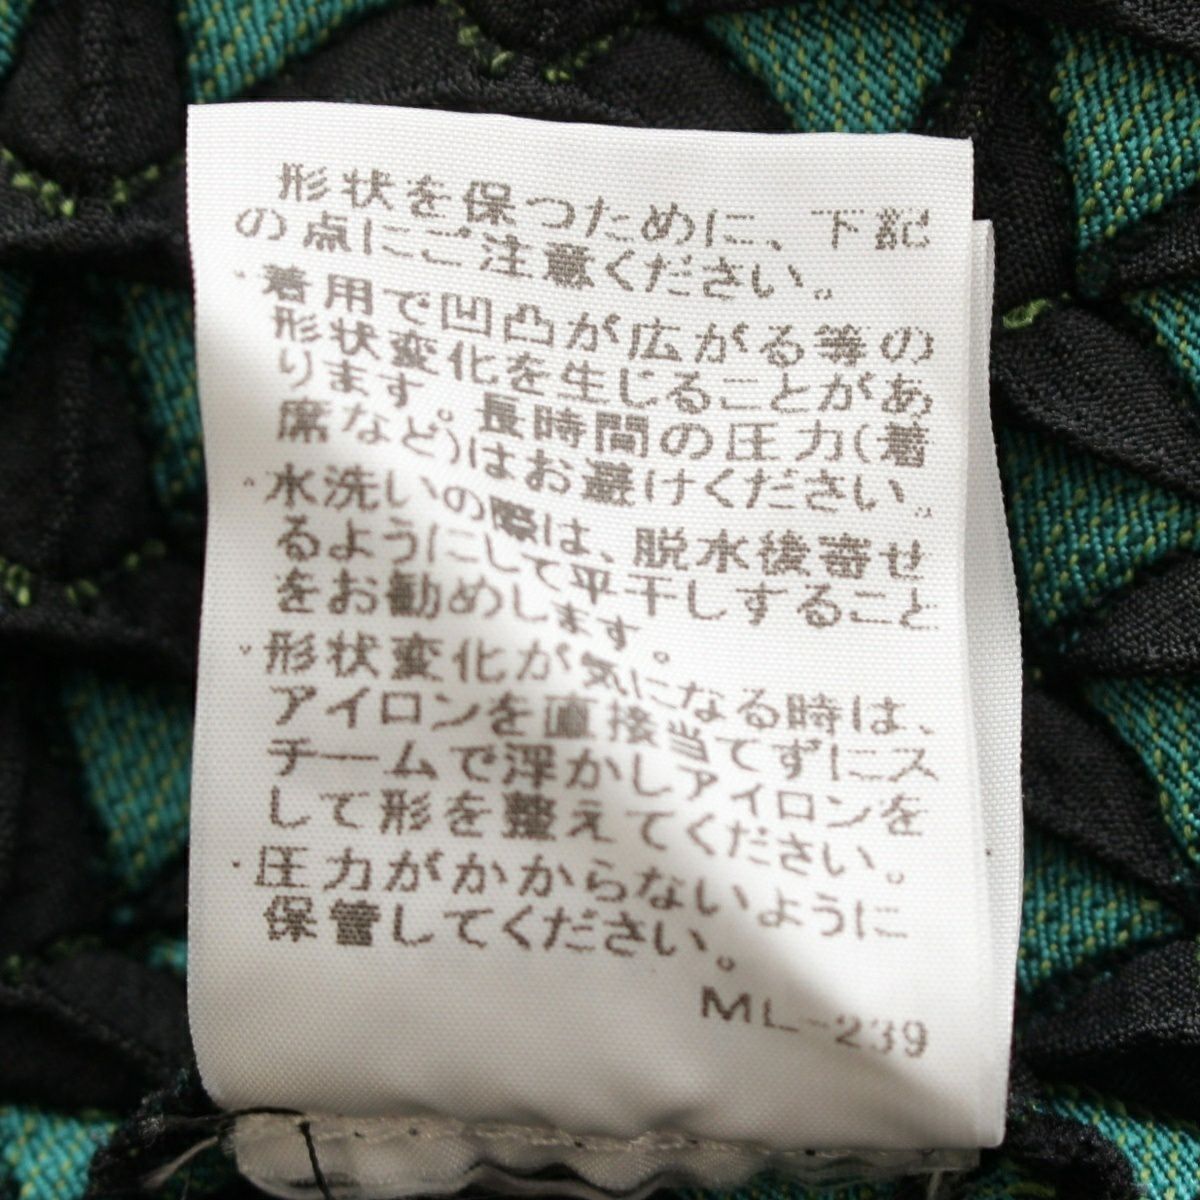 形状を保つために、下記
の点にご注意ください。
・着用で凹凸が広がる等の
形状変化を生じることがあ
ります。長時間の圧力(着
席など)はお避けください。
・水洗いの際は、脱水後寄せ
るようにして平干しすること
をお勧めします。
・形状変化が気になる時は、
アイロンを直接当てずにス
チームで浮かしアイロンを
して形を整えてください。
・圧力がかからないように
保管してください。
ML-239